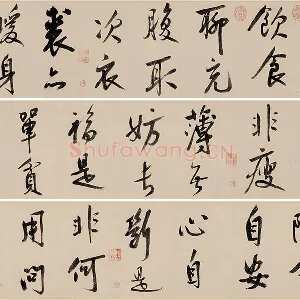 飲食
聊充
腹
次衣
裘
暖身
非瘦
薄無
妨長
福是
單貧
自安
心自
斷是
非何
用問
Shufawang.CN